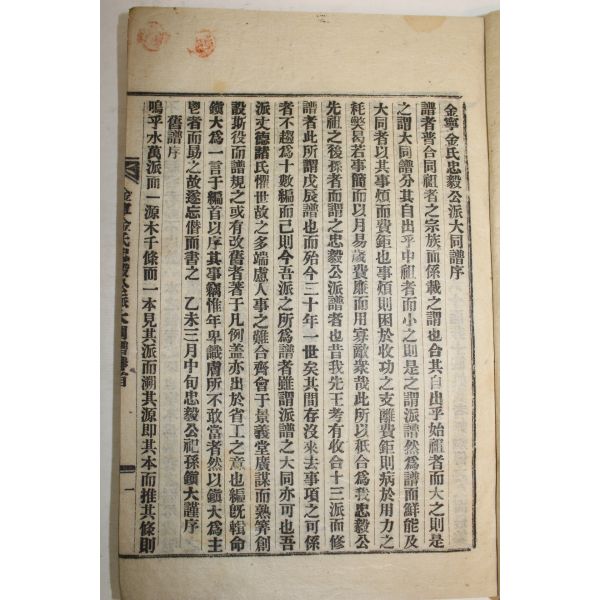 金寧金氏忠毅公派大同譜序
譜者普合同祖者之宗族而係載之謂也合其自出乎始祖者而大之則是
之謂大同譜分其自出乎中祖者而小之則是之謂派譜然爲譜而鮮能及
大同者以其事煩而費鉅也事煩則困於收功之支離費鉅則病於用力之
耗獘曷若事簡而以月易歲費廉而用寡敵衆哉此所以秖合爲我忠毅公
先祖之後孫者而謂之忠毅公派譜者也昔我先王考有收合十三派而修
譜者此所謂戊辰譜也而殆今三十年一世矣其間存沒來去事項之可係
者不趐爲十數編而已則今吾派之所爲譜者雖謂派譜之大同亦可也吾
派丈德諸氏懼世故之多端慮人事之難合齊會于景義堂廣謀而熟筭創
設斯役而譜規之或有改舊者著于凡例盖亦出於省工之意也編旣輯命
鎭大爲一言于編首以序其事竊惟年卑識膚所不敢當者然以鎭大爲主
鬯者而勗之故遂忘僭而書之 乙未三月中旬忠毅公祀孫鎭大謹序
舊譜序
嗚乎水萬派而一源木千條而一本見其派而溯其源即其本而推其條則
金寧金氏忠毅公派大同譜卷首
一